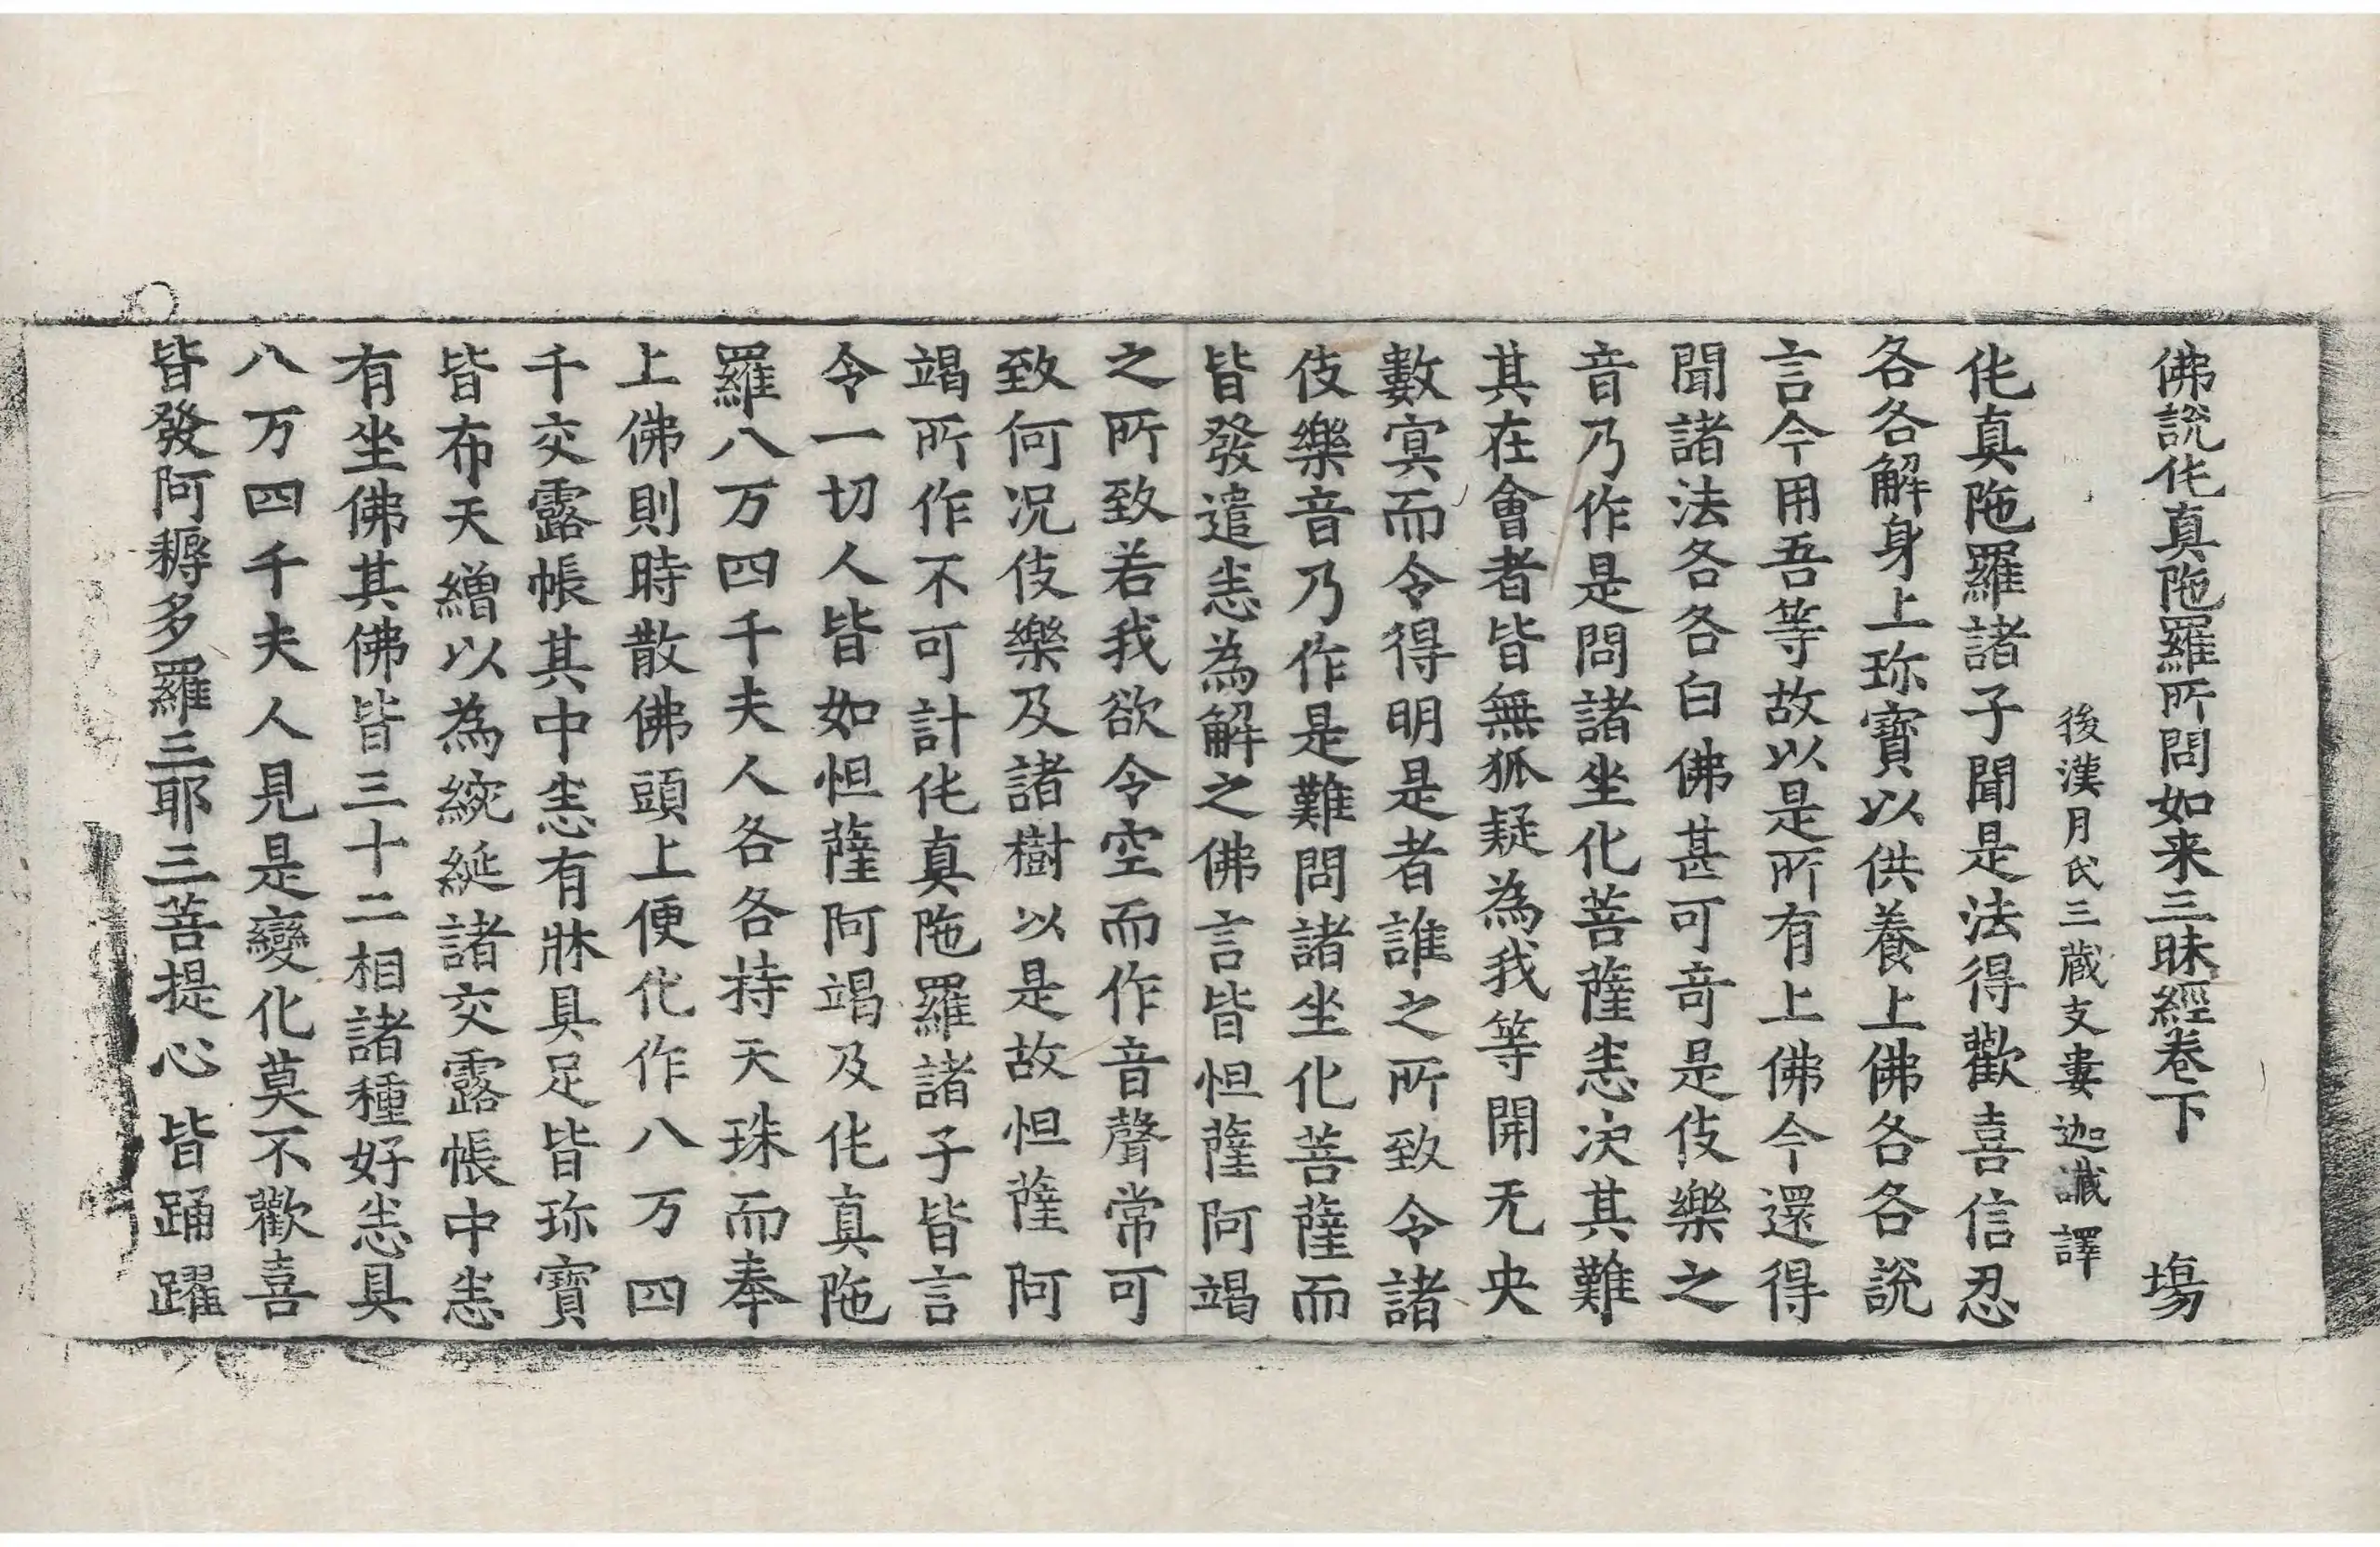 佛說伅真陁羅所問如来三昧經卷下 塲
後漢月氏三藏支婁迦讖譯
伅真陁羅諸子聞是法得歡喜信忍
各各解身上珎寶以供養上佛各各說
言今用吾等故以是所有上佛今還得
聞諸法各各白佛甚可竒是伎樂之
音乃作是問諸坐化菩薩恚决其難
其在會者皆無狐疑為我等開无央
數㝠而令得明是者誰之所致令諸
伎樂音乃作是難問諸坐化菩薩而
皆發遣恚為解之佛言皆怛薩阿竭
之所致若我欲令空而作音聲常可
致何况伎樂及諸樹以是故怛薩阿
竭所作不可計伅真陁羅諸子皆言
令一切人皆如怛薩阿竭及伅真陁
羅八万四千夫人各各持天珠而奉
上佛則時散佛頭上便化作八万四
千交露帳其中恚有牀具足皆珎寶
皆布天繒以為綩綖諸交露帳中恚
有坐佛其佛皆三十二相諸種好恚具
八万四千夫人見是變化莫不歡喜
皆發阿耨多羅三耶三菩提心皆踊躍